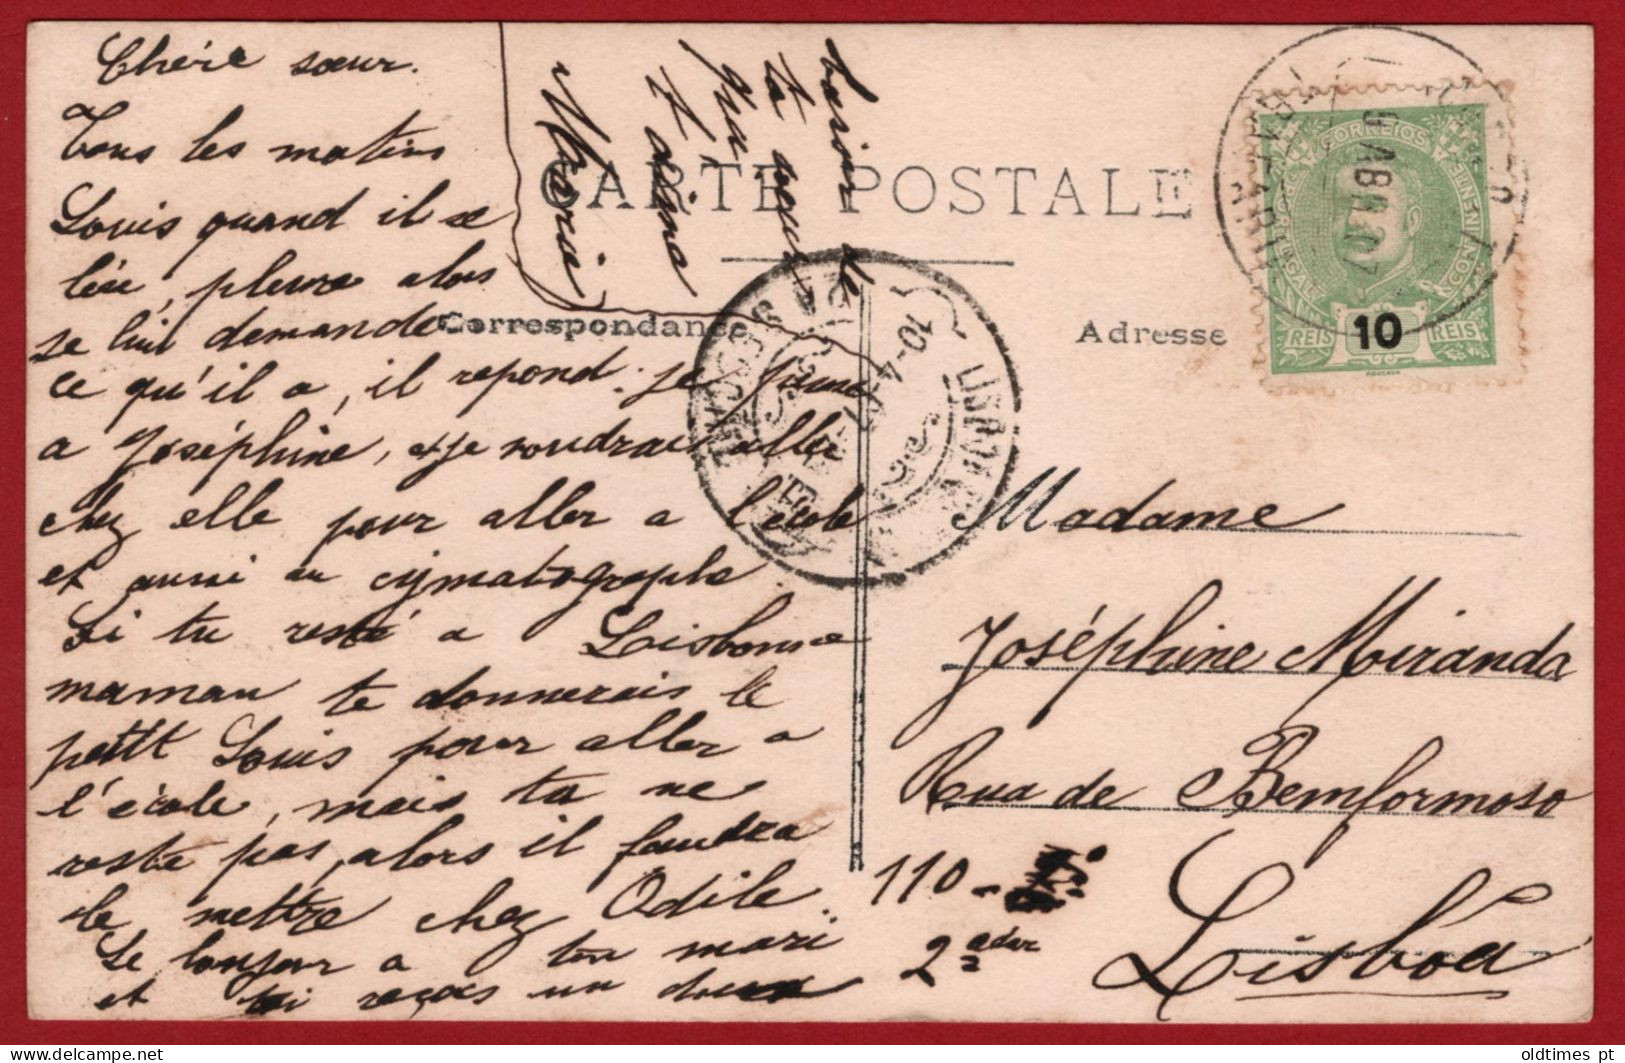 Chérie sœur.
Tous les matins
Louis quand il se
lève, pleure alors
se lui demande
ce qu'il a, il repond: je
a Joséphine, et je voudrais aller
chez elle pour aller a l'école
et aussi au cymatographe.
Si tu resté a Lisbonne
maman te donnerais le
petit Louis pour aller a
l'école, mais tu ne
reste pas, alors il faudra
le mettre chez Odile.
Le bonjour a ton mari
et toi reçois un doux
baiser de
ta sœur
qui
t'aime
Marie
CARTE POSTALE
Correspondance
Adresse
CORREIOS
10
REIS REIS
9 ABR 07
10-4
LISBOA
Madame
Joséphine Miranda
Rua de Bemformoso
110-
2º adar
Lisboa
oldtimes pt
delcampe.net